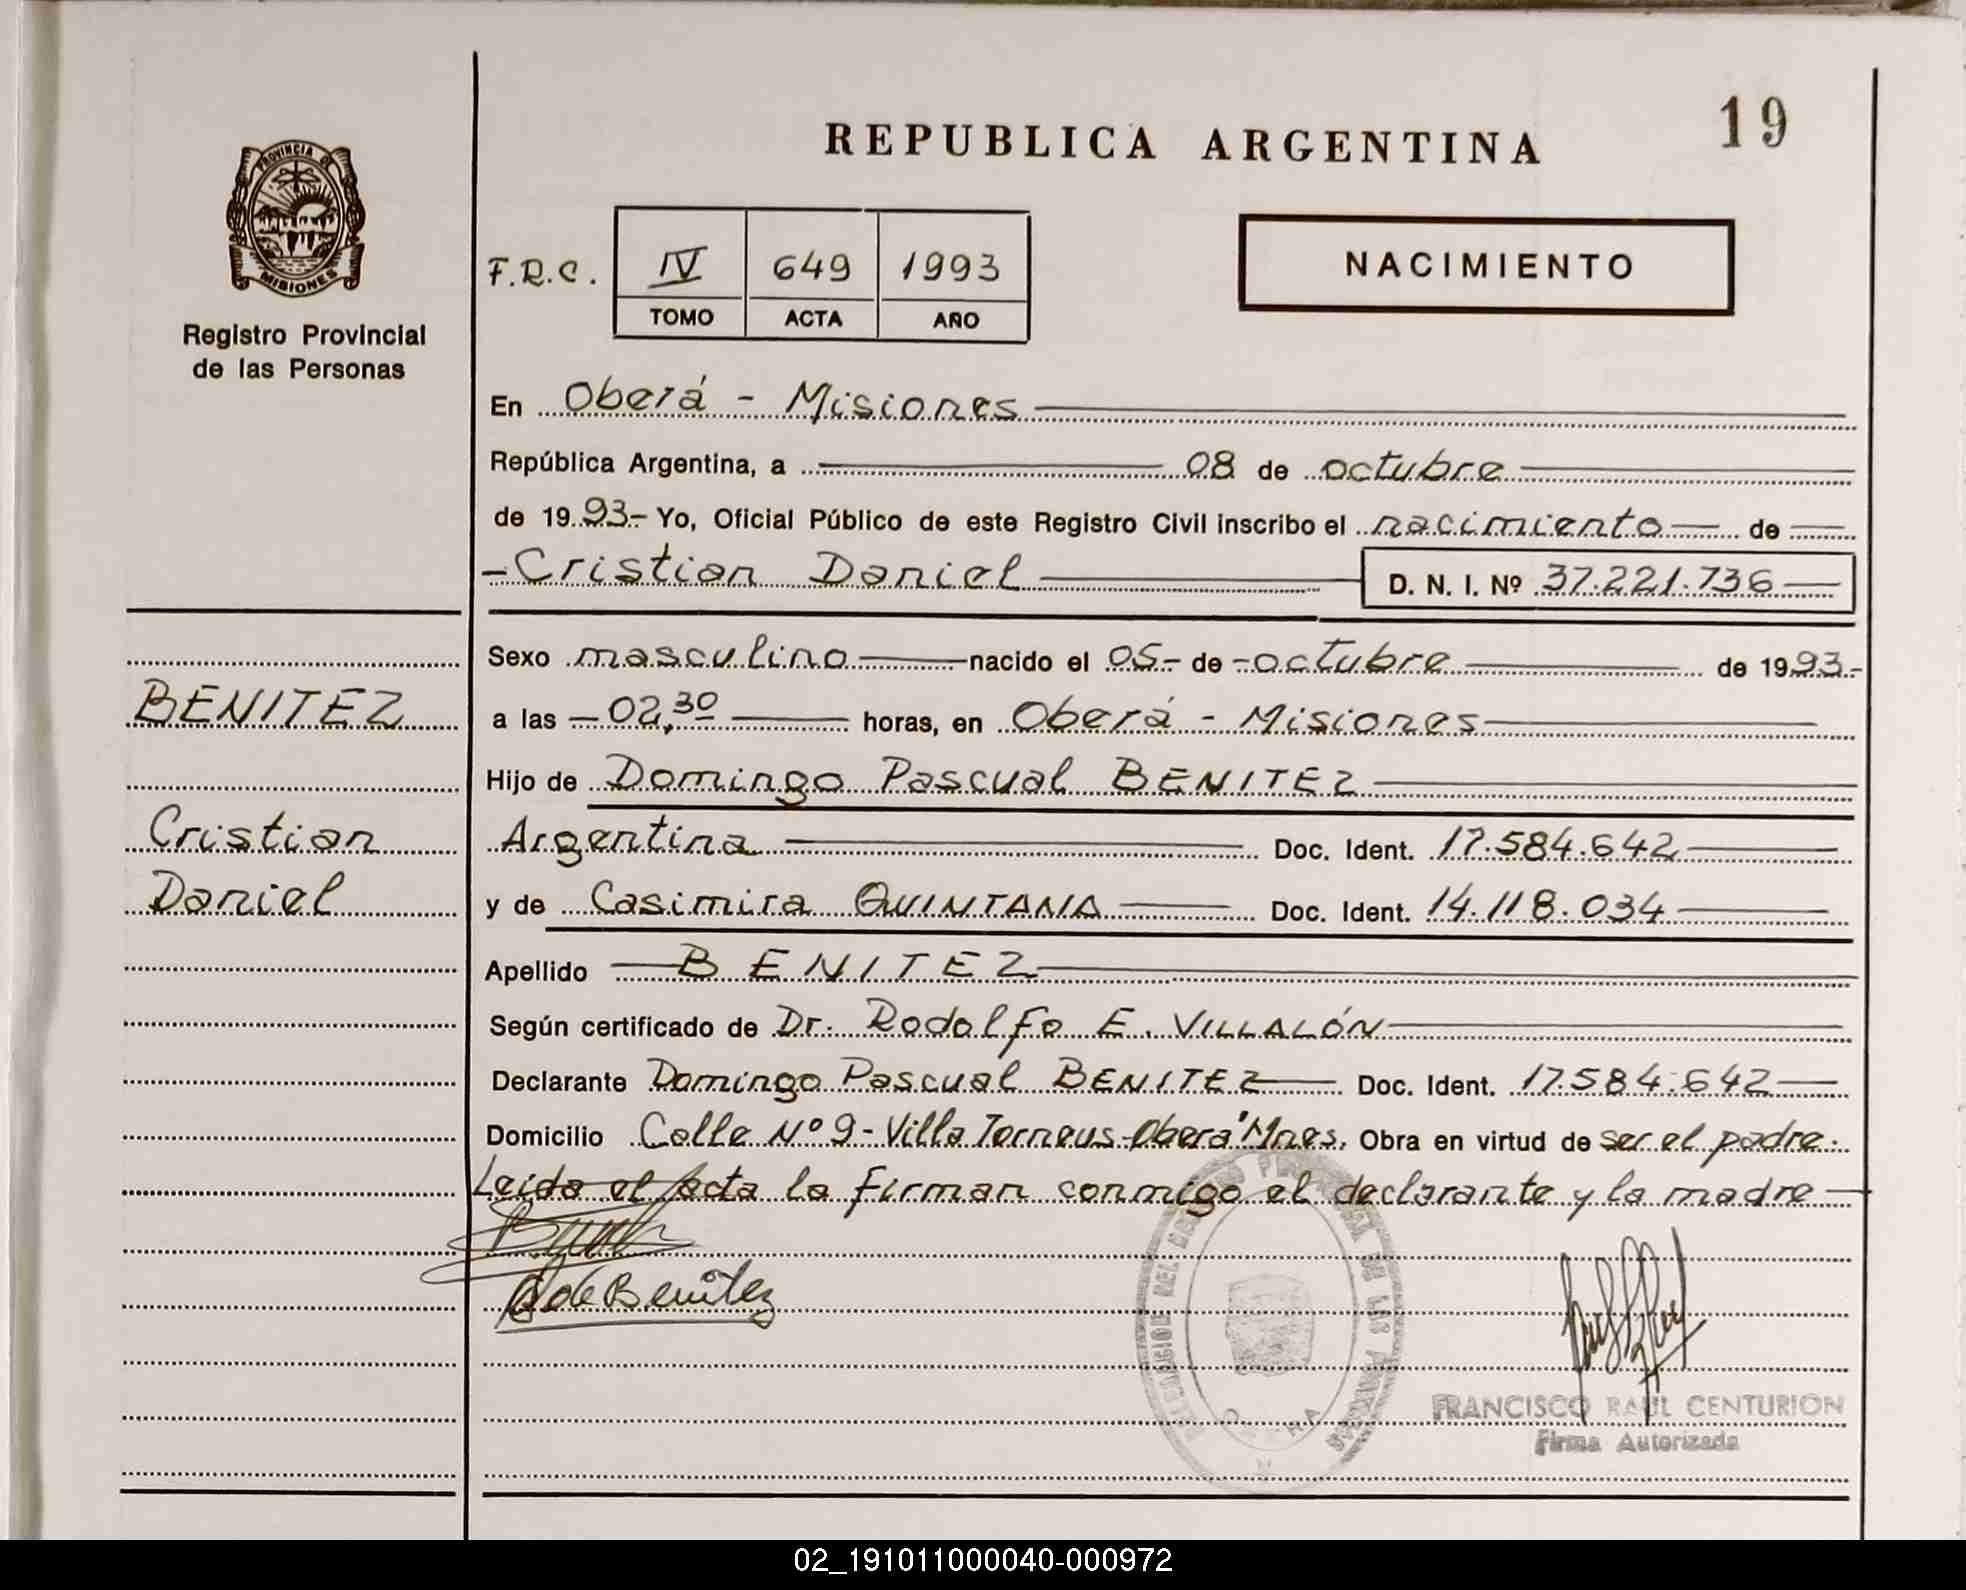 REPUBLICA ARGENTINA
19
PROVINCIA DE
MISIONES
Registro Provincial
de las Personas
F.R.C.
IV 649 1993
TOMO ACTA AÑO
NACIMIENTO
En Oberá - Misiones
República Argentina, a 08 de octubre
de 1993.- Yo, Oficial Público de este Registro Civil inscribo el nacimiento de
- Cristian Daniel D. N. I. Nº 37.221.736
Sexo masculino nacido el 05.- de - octubre de 1993.-
a las - 02,30 horas, en Oberá - Misiones
Hijo de Domingo Pascual BENITEZ
Argentina Doc. Ident. 17.584.642
y de Casimira QUINTANA Doc. Ident. 14.118.034
Apellido BENITEZ
Según certificado de Dr. Rodolfo E. VILLALÓN
Declarante Domingo Pascual BENITEZ Doc. Ident. 17.584.642
Domicilio Calle Nº 9 - Villa Torneus - Oberá Mnes. Obra en virtud de ser el padre.
Leida el acta la firman conmigo el declarante y la madre
BENITEZ
Cristian
Daniel
de Benitez
FRANCISCO RAUL CENTURION
Firma Autorizada
02_191011000040-000972